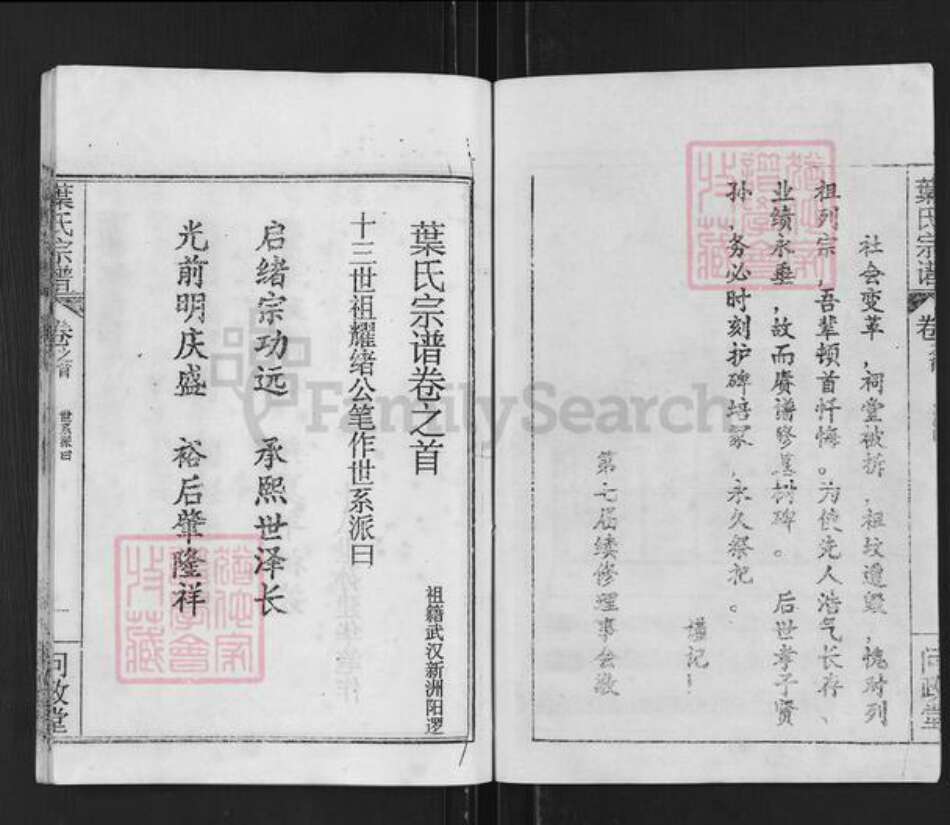 葉氏宗谱
卷
问政堂
社会变革，祠堂被拆，祖坟遭毁，愧对列
祖列宗，吾辈顿首忏悔。为使先人浩气长存、
业绩永垂，故而赓谱修墓树碑。后世孝子贤
孙，务必时刻护碑培冢，永久祭祀。
谨记！
第七届续修理事会激
葉氏宗谱卷之首
祖籍武汉新洲阳逻
十三世祖耀绪公笔作世系派曰
启绪宗功远 承熙世泽长
光前明庆盛 裕后肇隆祥
葉氏宗谱
卷之首
世系派曰
一
问政堂
FamilySearch